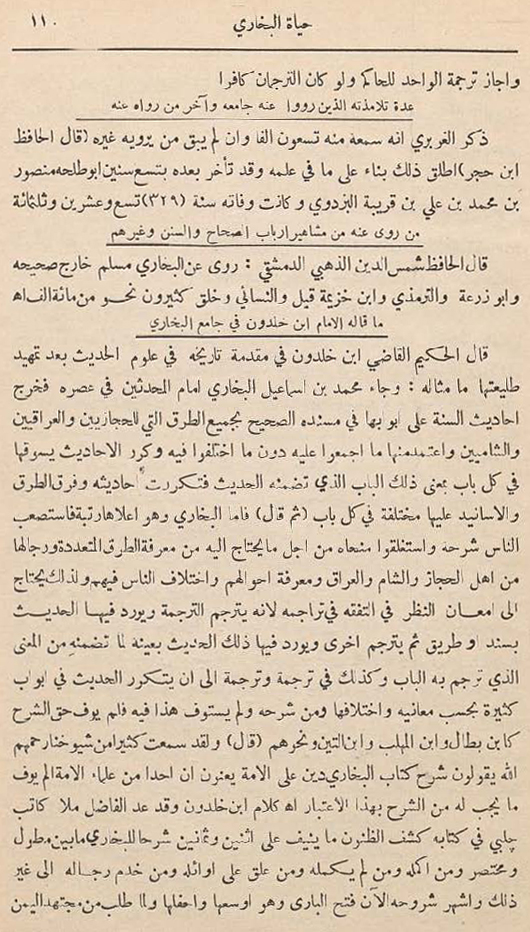 حياة البخاري
١١٠
واجاز ترجمة الواحد للحاكم ولو كان الترجمان كافرا
عدة تلامذته الذين رووا عنه جامعه وآخر من رواه عنه
ذكر الفربري انه سمعه منه تسعون الفا وان لم يبق من يرويه غيره (قال الحافظ
ابن حجر) اطلق ذلك بناء على ما في علمه وقد تأخر بعده بتسع سنين ابوطلحه منصور
بن محمد بن علي بن قريبة البزدوي وكانت وفاته سنة (٣٢٩) تسع وعشرين وثلثمائة
من روى عنه من مشاهير ارباب الصحاح والسنن وغيرهم
قال الحافظ شمس الدين الذهبي الدمشقي : روى عن البخاري مسلم خارج صحيحه
وابو زرعة والترمذي وابن خزيمة قيل والنسائي وخلق كثيرون نحو من مائة الف اه
ما قاله الامام ابن خلدون في جامع البخاري
قال الحكيم القاضي ابن خلدون في مقدمة تاريخه في علوم الحديث بعد تمهيد
طليعتها ما مثاله : وجاء محمد بن اسماعيل البخاري امام المحدثين في عصره فخرج
احاديث السنة على ابوابها في مسنده الصحيح بجميع الطرق التي للحجازيين والعراقيين
والشاميين واعتمد منها ما اجمعوا عليه دون ما اختلفوا فيه وكرر الاحاديث يسوقها
في كل باب بمعنى ذلك الباب الذي تضمنه الحديث فتكررت احاديثه وفرق الطرق
والاسانيد عليها مختلفة في كل باب (ثم قال) فاما البخاري وهو اعلاها رتبة فاستصعب
الناس شرحه واستغلقوا منحاه من اجل ما يحتاج اليه من معرفة الطرق المتعددة ورجالها
من اهل الحجاز والشام والعراق ومعرفة احوالهم واختلاف الناس فيهم ولذلك يحتاج
الى امعان النظر في التفقه في تراجمه لانه يترجم الترجمة ويورد فيها الحديث
بسند او طريق ثم يترجم اخرى ويورد فيها ذلك الحديث بعينه لما تضمنه من المعنى
الذي ترجم به الباب وكذلك في ترجمة وترجمة الى ان يتكرر الحديث في ابواب
كثيرة بحسب معانيه واختلافها ومن شرحه ولم يستوف هذا فيه فلم يوف حق الشرح
كابن بطال وابن المهلب وابن التين ونحوهم (قال) ولقد سمعت كثيرا من شيوخنا رحمهم
الله يقولون شرح كتاب البخاري دين على الامة يعنون ان احدا من علماء الامة لم يوف
ما يجب له من الشرح بهذا الاعتبار اه كلام ابن خلدون وقد عد الفاضل ملا كاتب
چلبي في كتابه كشف الظنون ما ينيف على اثنين وثمانين شرحا للبخاري ما بين مطول
ومختصر ومن اكمله ومن لم يكمله ومن علق على اوائله ومن خدم رجاله الى غير
ذلك واشهر شروحه الآن فتح البارى وهو اوسعها واحفلها ولما طلب من مجتهد اليمن